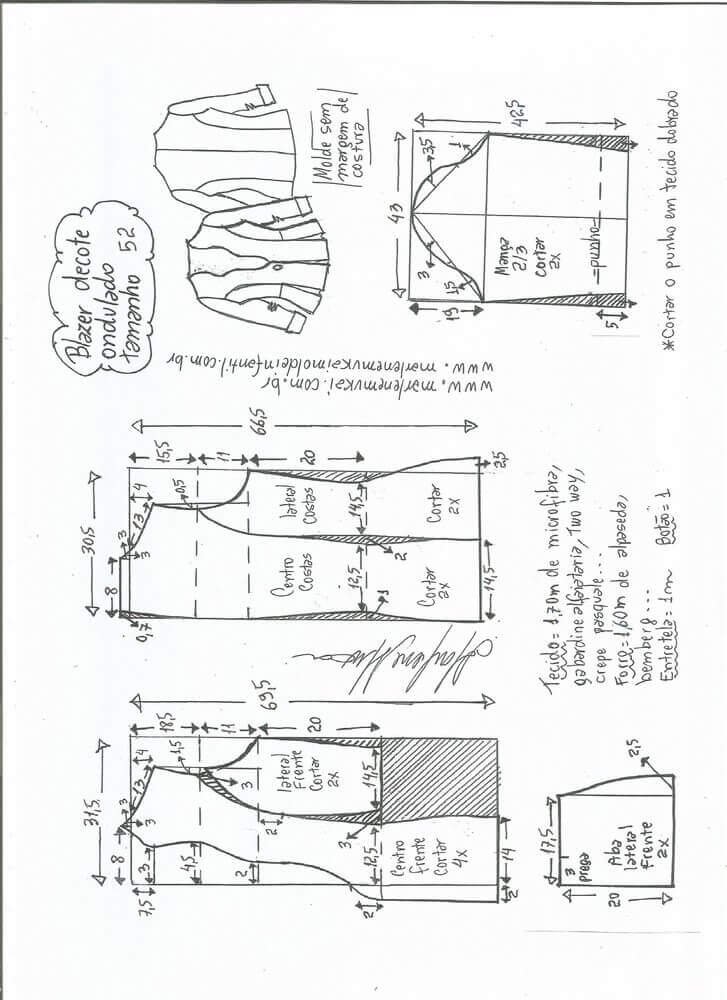 Blazer decote
ondulado
tamanho 52
Molde sem
margem de
costura
www.marlenemukai.com.br
www.marlenemukaimoldeinfantil.com.br
31,5
8
3
3
13
4
1,5
18,5
11
20
69,5
7,5
3
4,5
2
2
3
2
3
12,5
14,5
14
2
lateral
Frente
Cortar
2x
Centro
Frente
Cortar
4x
30,5
8
3
3
13
4
0,5
15,5
11
20
66,5
0,7
1
2
12,5
14,5
14,5
2,5
Centro
Costas
Cortar
2x
lateral
Costas
Cortar
2x
43
42,5
19
3
1,5
3,5
1
5
Manga
2/3
Cortar
2x
=punho=
*Cortar o punho em tecido dobrado
17,5
20
2,5
3
prega
Aba
lateral
Frente
2x
Tecido=1,70m de microfibra,
gabardine alfaiataria, Two way,
crepe pasquale...
Forro=1,60m de alpaseda,
bemberg...
Entretela=1m Botão=1